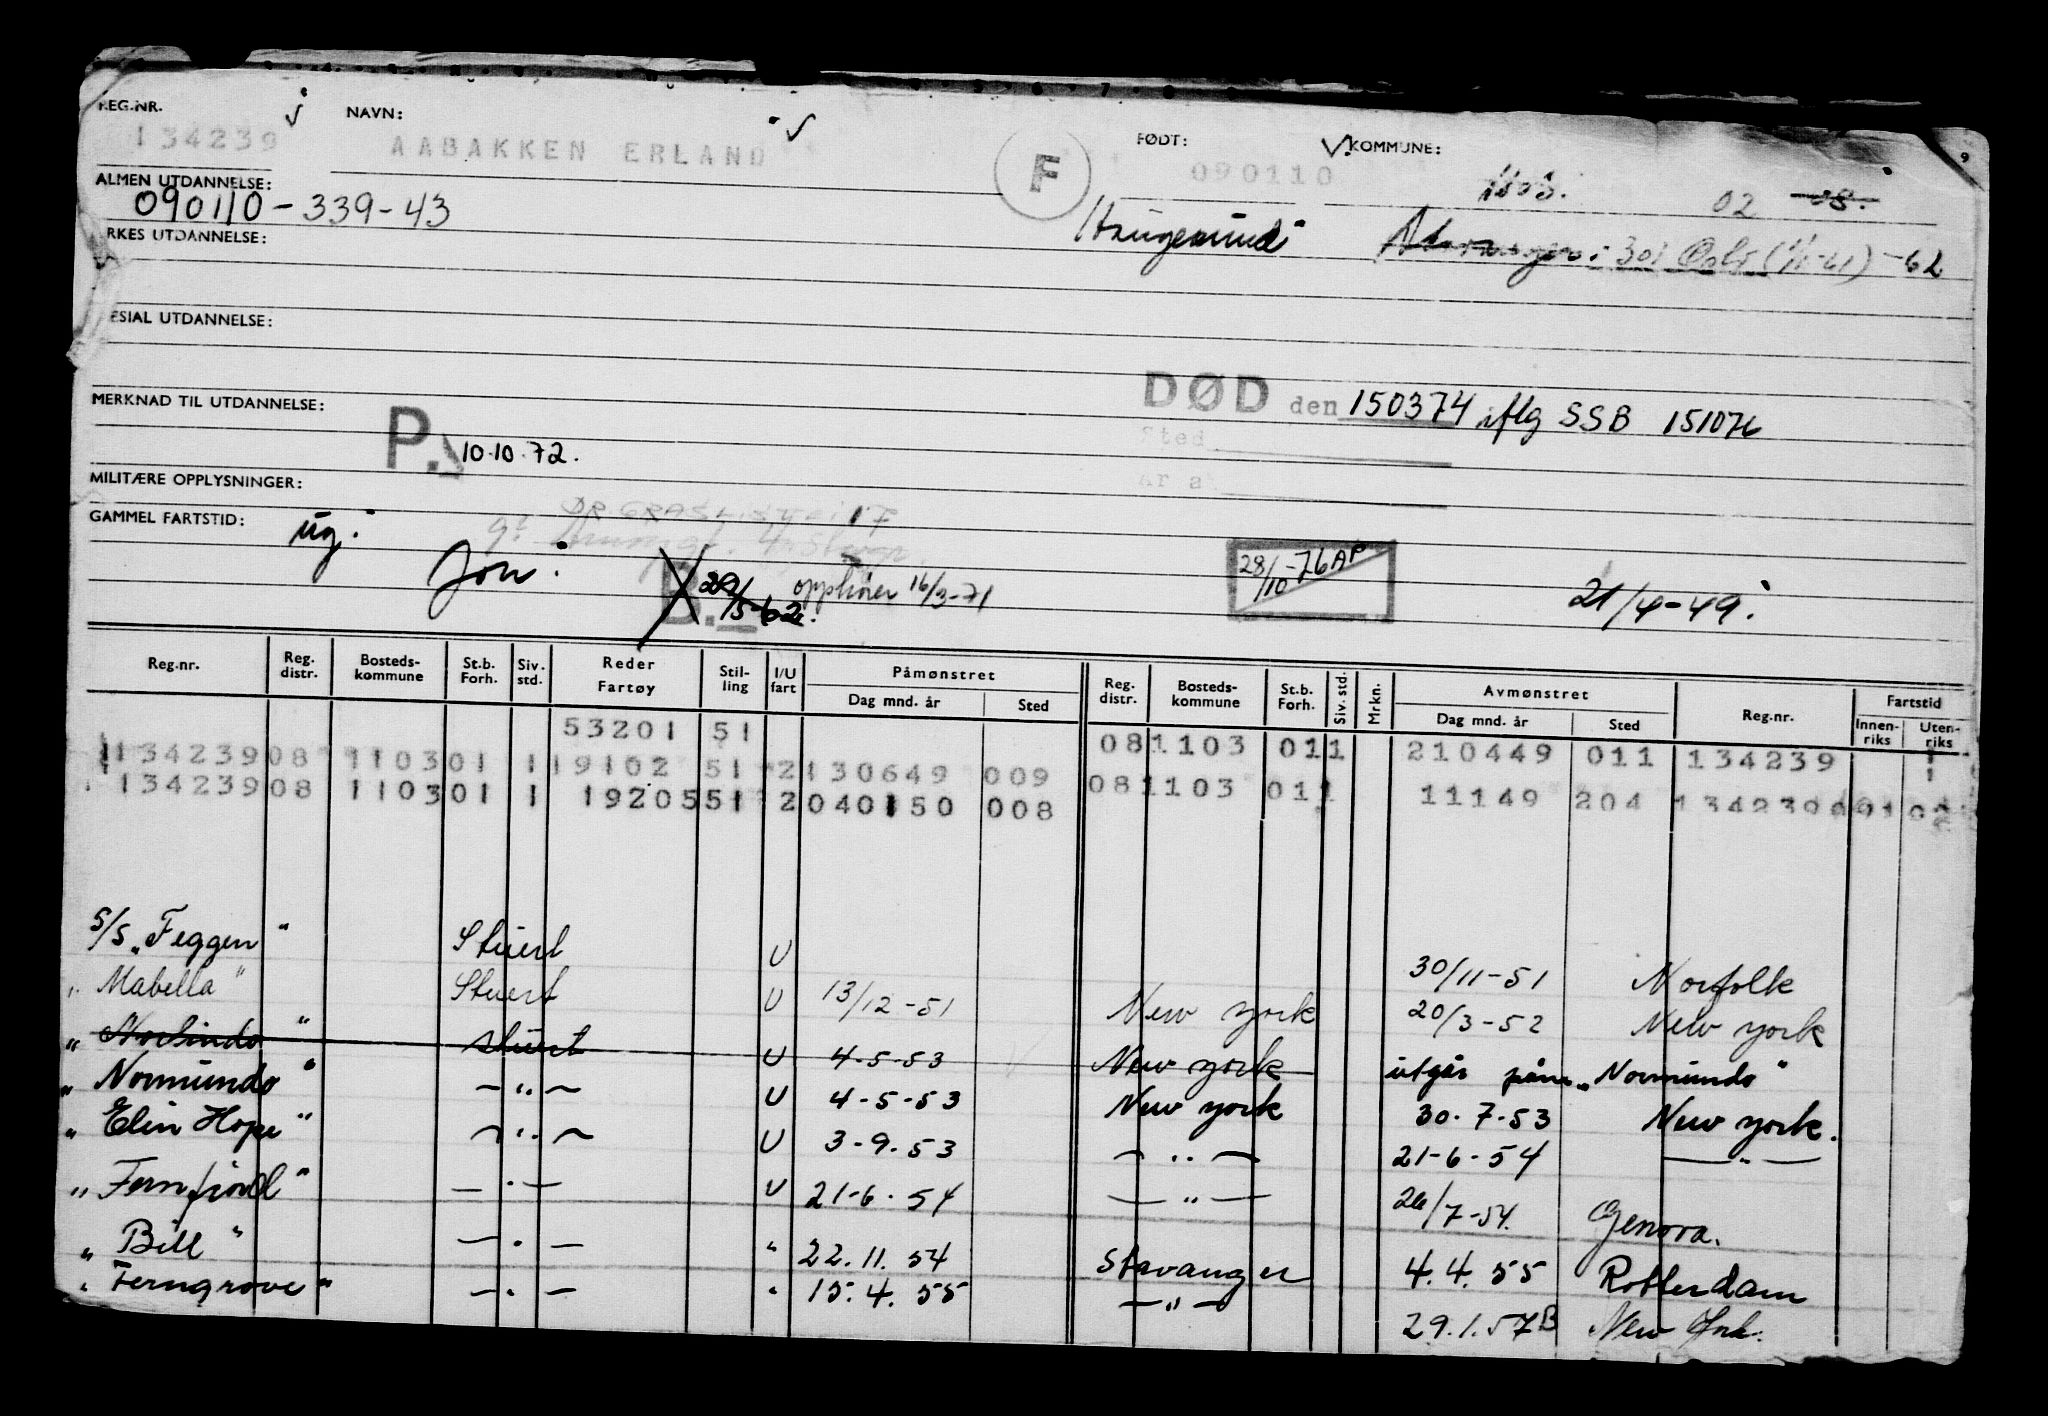 REG.NR. NAVN: FØDT: KOMMUNE:
134239 AABAKKEN ERLAND F 090110 02 08.
ALMEN UTDANNELSE:
090110-339-43 Haugesund Stavanger: 301 Oslo (1/1-61) -62
YRKES UTDANNELSE:
SPESIAL UTDANNELSE:
DØD den 150374 iflg SSB 151076
MERKNAD TIL UTDANNELSE:
Sted
P. 10.10.72.
MILITÆRE OPPLYSNINGER:
GAMMEL FARTSTID: ug.
B. 29/5-62. opphører 16/3-71 28/10-76 AP 21/4-49.
Reg.nr. Reg. distr. Bosteds-kommune St.b. Forh. Siv. std. Reder Fartøy Stil-ling I/U fart Påmønstret Dag mnd. år Sted Reg. distr. Bosteds-kommune St.b. Forh. Siv. std. Mrkn. Avmønstret Dag mnd. år Sted Reg.nr. Fartstid Innen-riks Uten-riks
53201 51 08 1103 01 1 210449 011 134239
134239 08 1103 01 1 19102 51 2 130649 009 08 1103 01 1 11149 204 134239
134239 08 1103 01 1 19205 51 2 040150 008
S/S "Feggen" Stuert U 30/11-51 Norfolk
" Mabella" Stuert U 13/12-51 New York 20/3-52 New York
" Norlindo " stuert U 4-5-53 New York utgår "Normundo"
" Normundo " — " — U 4-5-53 New York 30.7-53 New York.
" Elin Hope " — " — U 3-9.53 — " — 21-6-54 — " —
" Fernfjord " — " — U 21-6.54 — " — 26/7-54. Genova.
" Bill " — " — " 22.11.54 Stavanger 4.4.55 Rotterdam
" Ferngrove " — " — " 15.4.55 — " — 29.1.57 B New York.